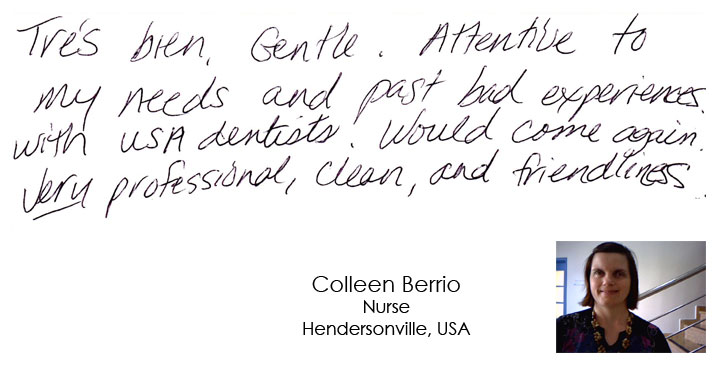 Tre's bien, Gentle. Attentive to
my needs and past bad experiences.
with USA dentists. Would come again.
Very professional, clean, and friendliness.
Colleen Berrio
Nurse
Hendersonville, USA